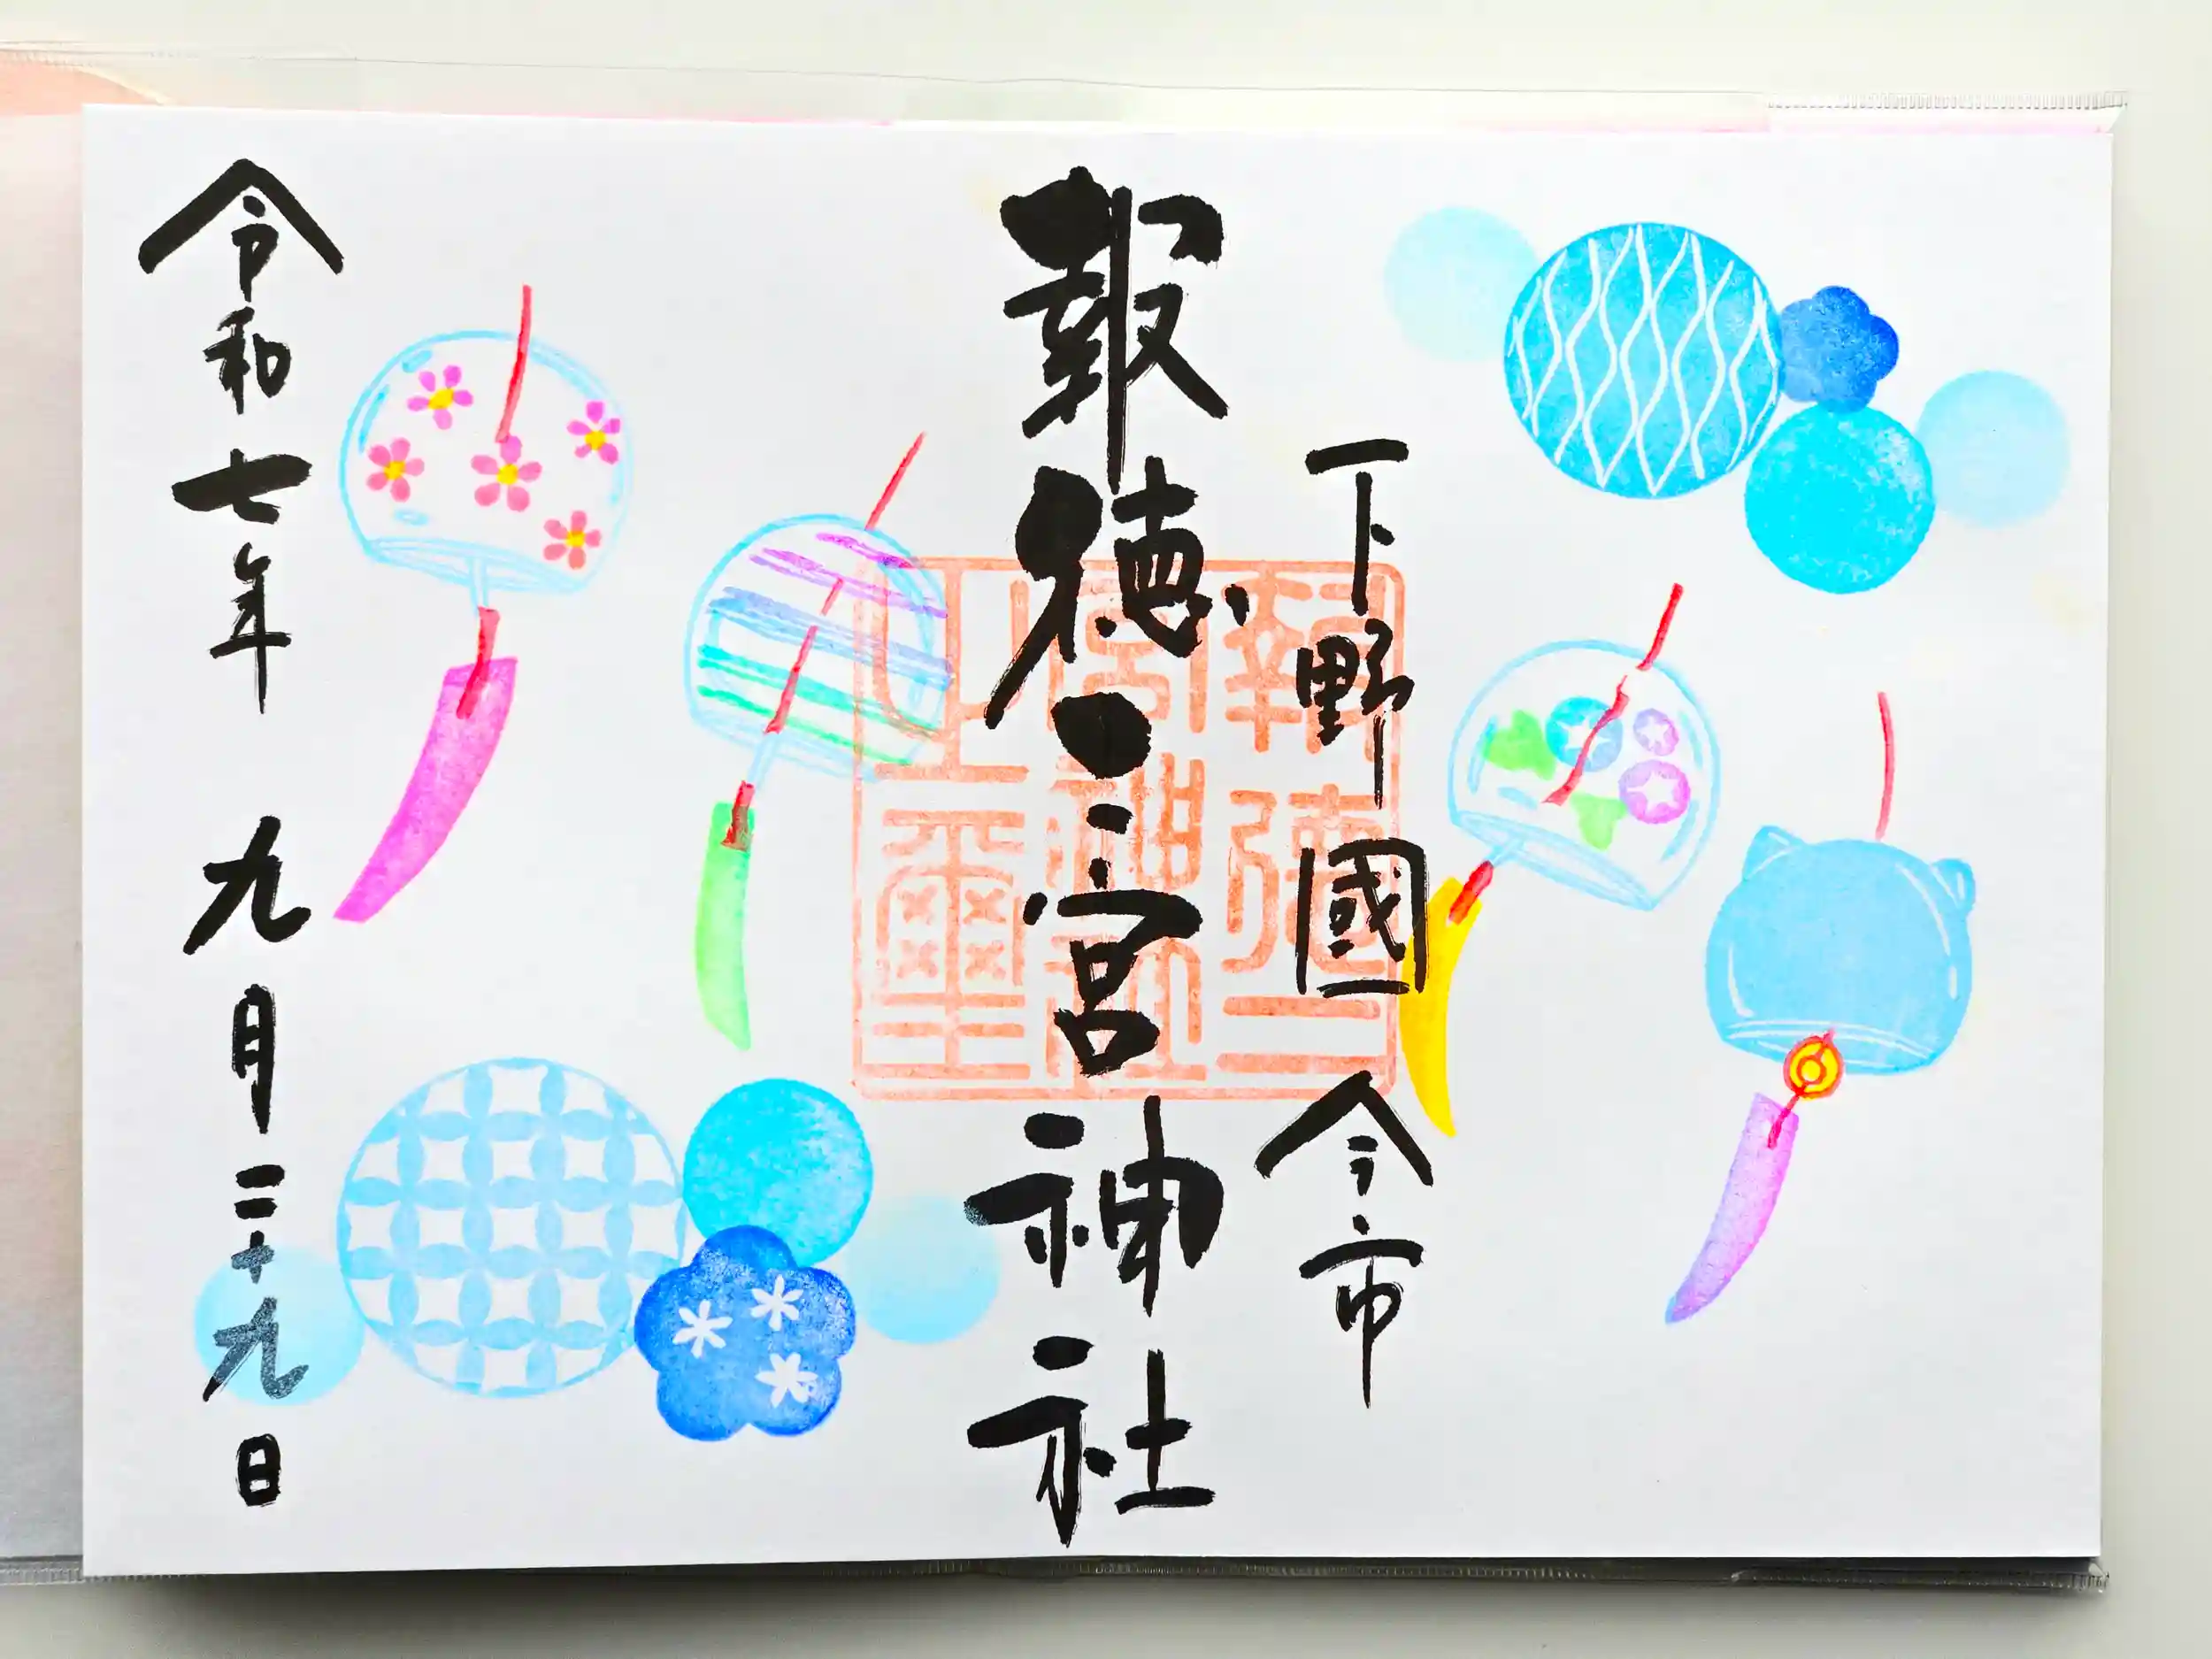 下野國 今市
報徳二宮神社
報徳二
宮神社
之璽
令和七年 九月二十九日